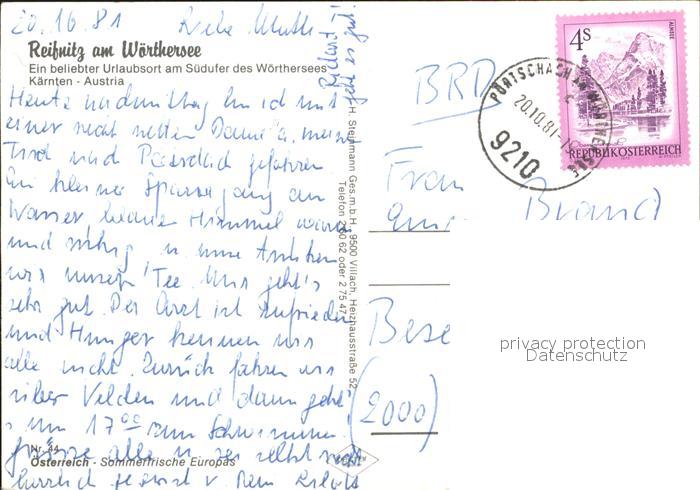 20.10.81 Liebe Mutti!
Reifnitz am Wörthersee
Ein beliebter Urlaubsort am Südufer des Wörthersees
Kärnten - Austria
Heute nachmittag bin ich mit
einer recht netten Dame a. meinem
Tisch nach gefahren.
Ein kleiner Spaziergang am
Wasser, blauer Himmel, warm
und ruhig u. ein
wir unseren Tee. Uns geht's
sehr gut. Der Arzt ist zufrieden
und Hunger kennen wir
alle nicht. Zurück fahren wir
über Velden und dann geht's
um 17 00 zum Schwimmen.
Grüsse alle u. sei selbst recht
herzlich gegrüsst v. Dein
geht es gut!
Nr. 44
Österreich - Sommerfrische Europas
H. Steinmann Ges.m.b.H., 9500 Villach, Heizhausstraße 52
Telefon 2 60 62 oder 2 75 47
BRD
Frau
Brand
Bese
(2000)
4s
ALMSEE
REPUBLIK ÖSTERREICH
PÖRTSCHACH AM WÖRTHER SEE
20.10.81-15
9210
privacy protection
Datenschutz